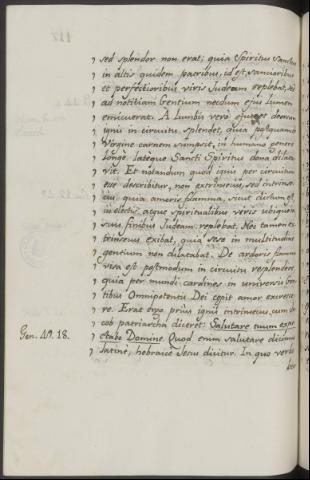 sed splendor non erat; quia Spiritus Sanctus
in altis quidem patribus, id est, sanctioribus
et perfectioribus viris Judæam replebat, sed
ad notitiam Gentium necdum ejus lumen
emicuerat. A lumbis vero deorsum
ignis in circuitu splendet, quia postquam ex
Virgine carnem sumpsit, in humano genere
longe lateque Sancti Spiritus dona dilata
vit. Et notandum quod ignis per circuitum
esse describitur, non extrinsecus, sed intrinse
cus, quia amoris flamma, sicut dictum est,
in electis atque spiritualibus viris ubique in
suis finibus Judæam replebat. Nec tamen ex
trinsecus exibat, quia sese in multitudinem
gentium non dilatabat. De amoris flamma
visa est postmodum in circuitu resplendere
quia per mundi cardines in universis
tibus Omnipotentis Dei cepit amor excresce
re. Erat ergo prius ignis intrinsecus, cum Ja
cob patriarcha diceret: Salutare tuum expe
Gen. 49. 18.
ctabo Domine. Quod enim salutare dicimus
latine, hebraice Jesus dicitur. In quo verbi